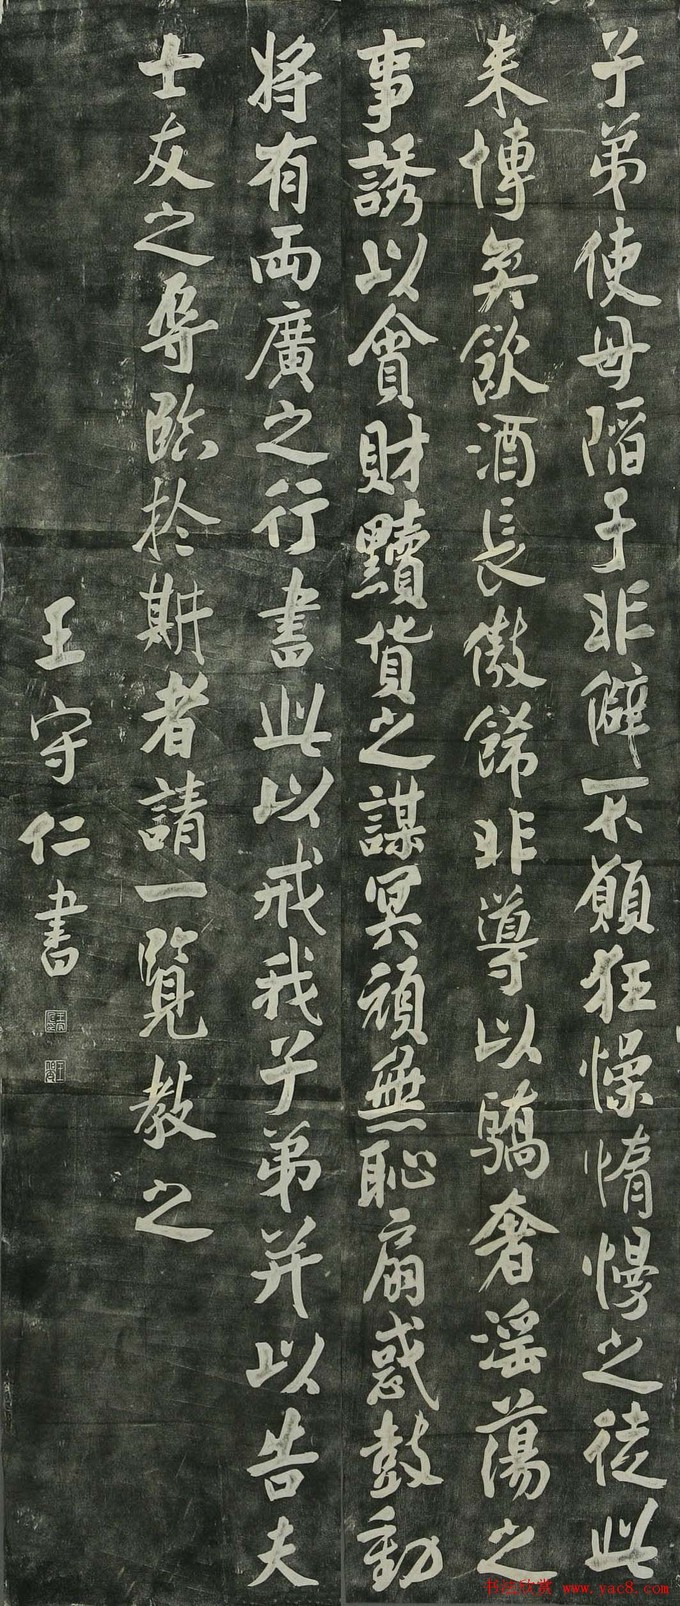 子弟使毋陷于非僻不願狂懆惰慢之徒此
来博奕飲酒長傲飾非導以驕奢滛蕩之
事誘以貪財黷貨之謀冥頑無恥扇惑鼓動
将有兩廣之行書此以戒我子弟并以告夫
士友之辱臨於斯者請一覽教之
王守仁書
www.yac8.com